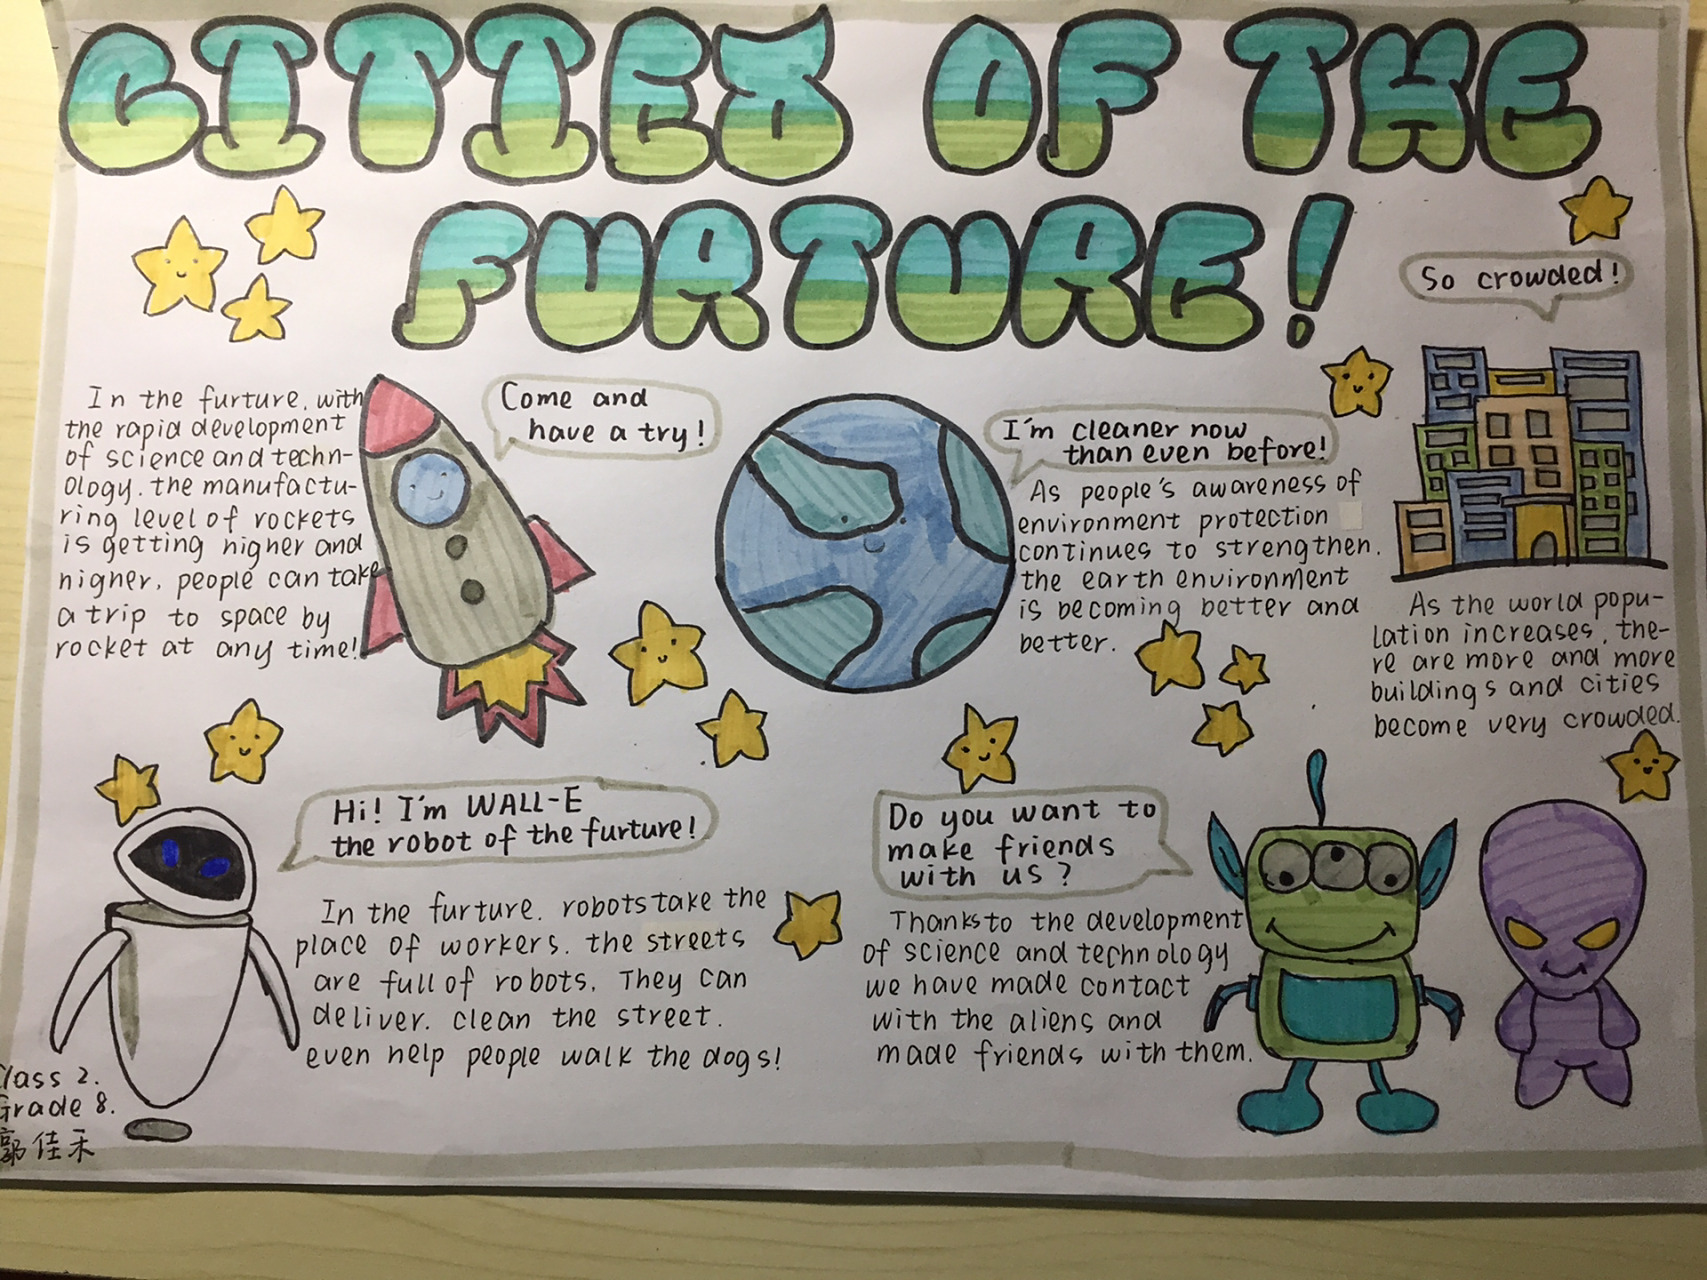 CITIES OF THE
FURTURE!
So crowded!
In the furture, with
the rapid development
of science and techn-
ology. the manufactu-
ring level of rockets
is getting higher and
higher, people can take
a trip to space by
rocket at any time!
Come and
have a try!
I'm cleaner now
than even before!
As people's awareness of
environment protection
continues to strengthen.
the earth environment
is becoming better and
better.
As the world popu-
lation increases, the-
re are more and more
buildings and cities
become very crowded.
Hi! I'm WALL-E
the robot of the furture!
In the furture. robots take the
place of workers. the streets
are full of robots. They can
deliver. clean the street.
even help people walk the dogs!
Do you want to
make friends
with us?
Thanks to the development
of science and technology
we have made contact
with the aliens and
made friends with them.
Class 2.
Grade 8.
郭佳禾